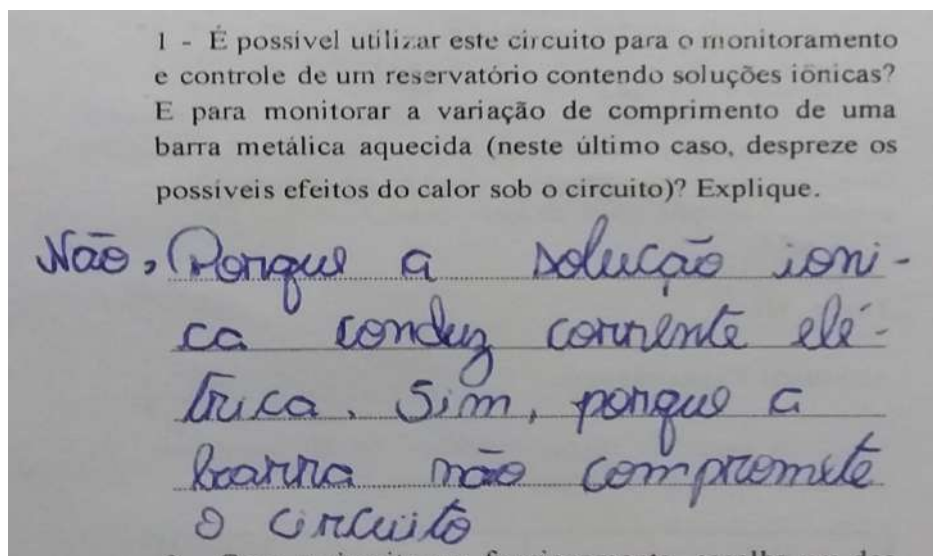 1 - É possível utilizar este circuito para o monitoramento
e controle de um reservatório contendo soluções iônicas?
E para monitorar a variação de comprimento de uma
barra metálica aquecida (neste último caso, despreze os
possíveis efeitos do calor sob o circuito)? Explique.
Não, Porque a solução ioni-
ca conduz corrente elé-
trica. Sim, porque a
barra não compromete
o circuito